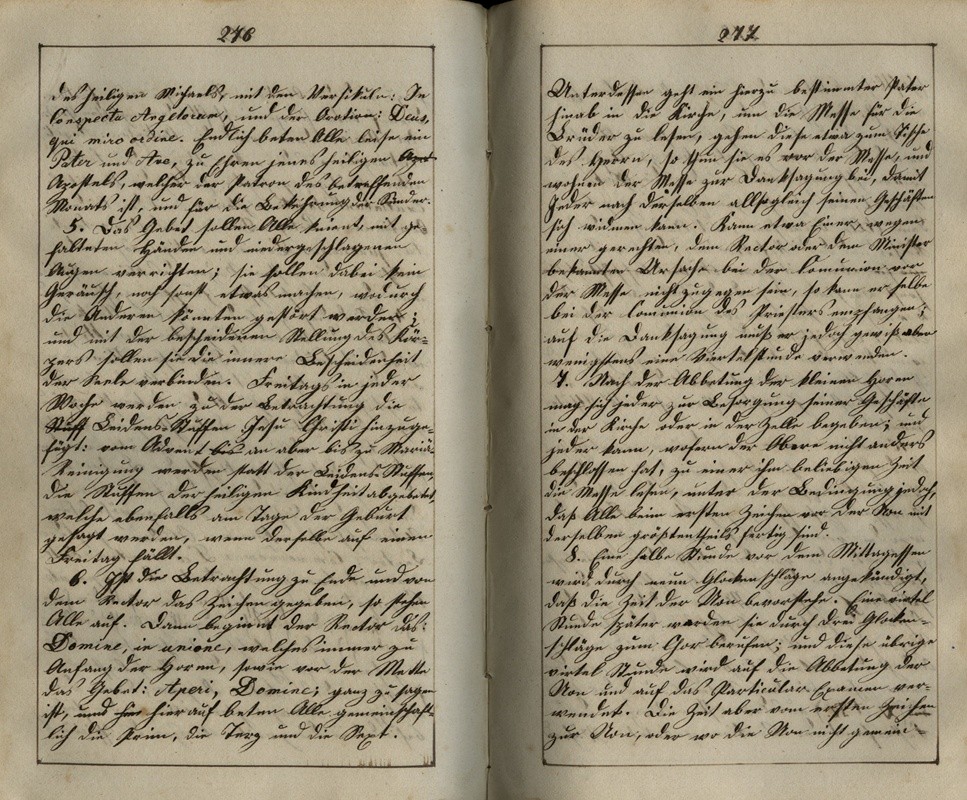 276
des heiligen Michaels, mit den Versikuln: In
Conspectu Angelorum, und der Oration: Deus,
qui miro ordine. Endlich beten Alle leise ein
Pater und Ave, zu Ehren jenes heiligen Apo-
Apostels, welcher der Patron des betreffenden
Monats ist, und für die Bekehrung der Sünder.
5. Das Gebet sollen Alle kniend, mit ge-
falteten Händen und niedergeschlagenen
Augen verrichten; sie sollen dabei kein
Geräusch, noch sonst etwas machen, wodurch
die Anderen könnten gestört werden;
und mit der bescheidenen Stellung des Kör-
pers sollen sie die innere Bescheidenheit
der Seele verbinden. Freitags in jeder
Woche werden zu der Betrachtung die
Stuff Leidens-Stuffen Jesu Christi hinzuge-
fügt: vom Advent bis an aber bis zu Mariä
Reinigung werden statt der Leidens-Stuffen,
die Stuffen der heiligen Kindheit abgebetet,
welche ebenfalls am Tage der Geburt
gesagt werden, wenn derselbe auf einen
Freitag fällt.
6. Ist die Betrachtung zu Ende und von
dem Rector das Zeichen gegeben, so stehen
Alle auf. Dann beginnt der Rector das:
Domine, in unione, welches immer zu
Anfang der Horen, sowie vor der Mette
das Gebet: Aperi, Domine; ganz zu sagen
ist, und hier hierauf beten Alle gemeinschaft-
lich die Prim, die Terz und die Sext.
277
Unterdessen geht ein hierzu bestimmter Pater
hinab in die Kirche, um die Messe für die
Brüder zu lesen, gehen diese etwa zum Tische
des Herrn, so thun sie es vor der Messe, und
wohnen der Messe zur Danksagung bei, damit
Jeder nach derselben allsogleich seinen Geschäften
sich widmen kann. Kann etwa Einer, wegen
einer gerechten, dem Rector oder dem Minister
bekannten Ursache bei der Comunion vor
der Messe nicht zugegen sein, so kann er selbe
bei der Comunion des Priesters empfangen;
auf die Danksagung muß er jedoch gewiß aber
wenigstens eine Viertelstunde verwenden.
7. Nach der Abbetung der kleinen Horen
mag sich jeder zur Besorgung seiner Geschäfte
in der Kirche oder in der Zelle begeben; und
jeder kann, wofern der Obere nicht anders
beschlossen hat, zu einer ihm beliebigen Zeit
die Messe lesen, unter der Bedingung jedoch,
daß Alle beim ersten Zeichen vor der Non mit
derselben größtentheils fertig sind.
8. Eine halbe Stunde vor dem Mittagessen
wird durch neun Glockenschläge angekündigt,
daß die Zeit der Non bevorstehe. Eine viertel
Stunde später werden sie durch drei Glocken-
schläge zum Chor berufen; und diese übrige
viertel Stunde wird auf die Abbetung der
Non und auf das Particular-Examen ver-
wendet. Die Zeit aber vom ersten Zeichen
zur Non, oder wo die Non nicht gemein-